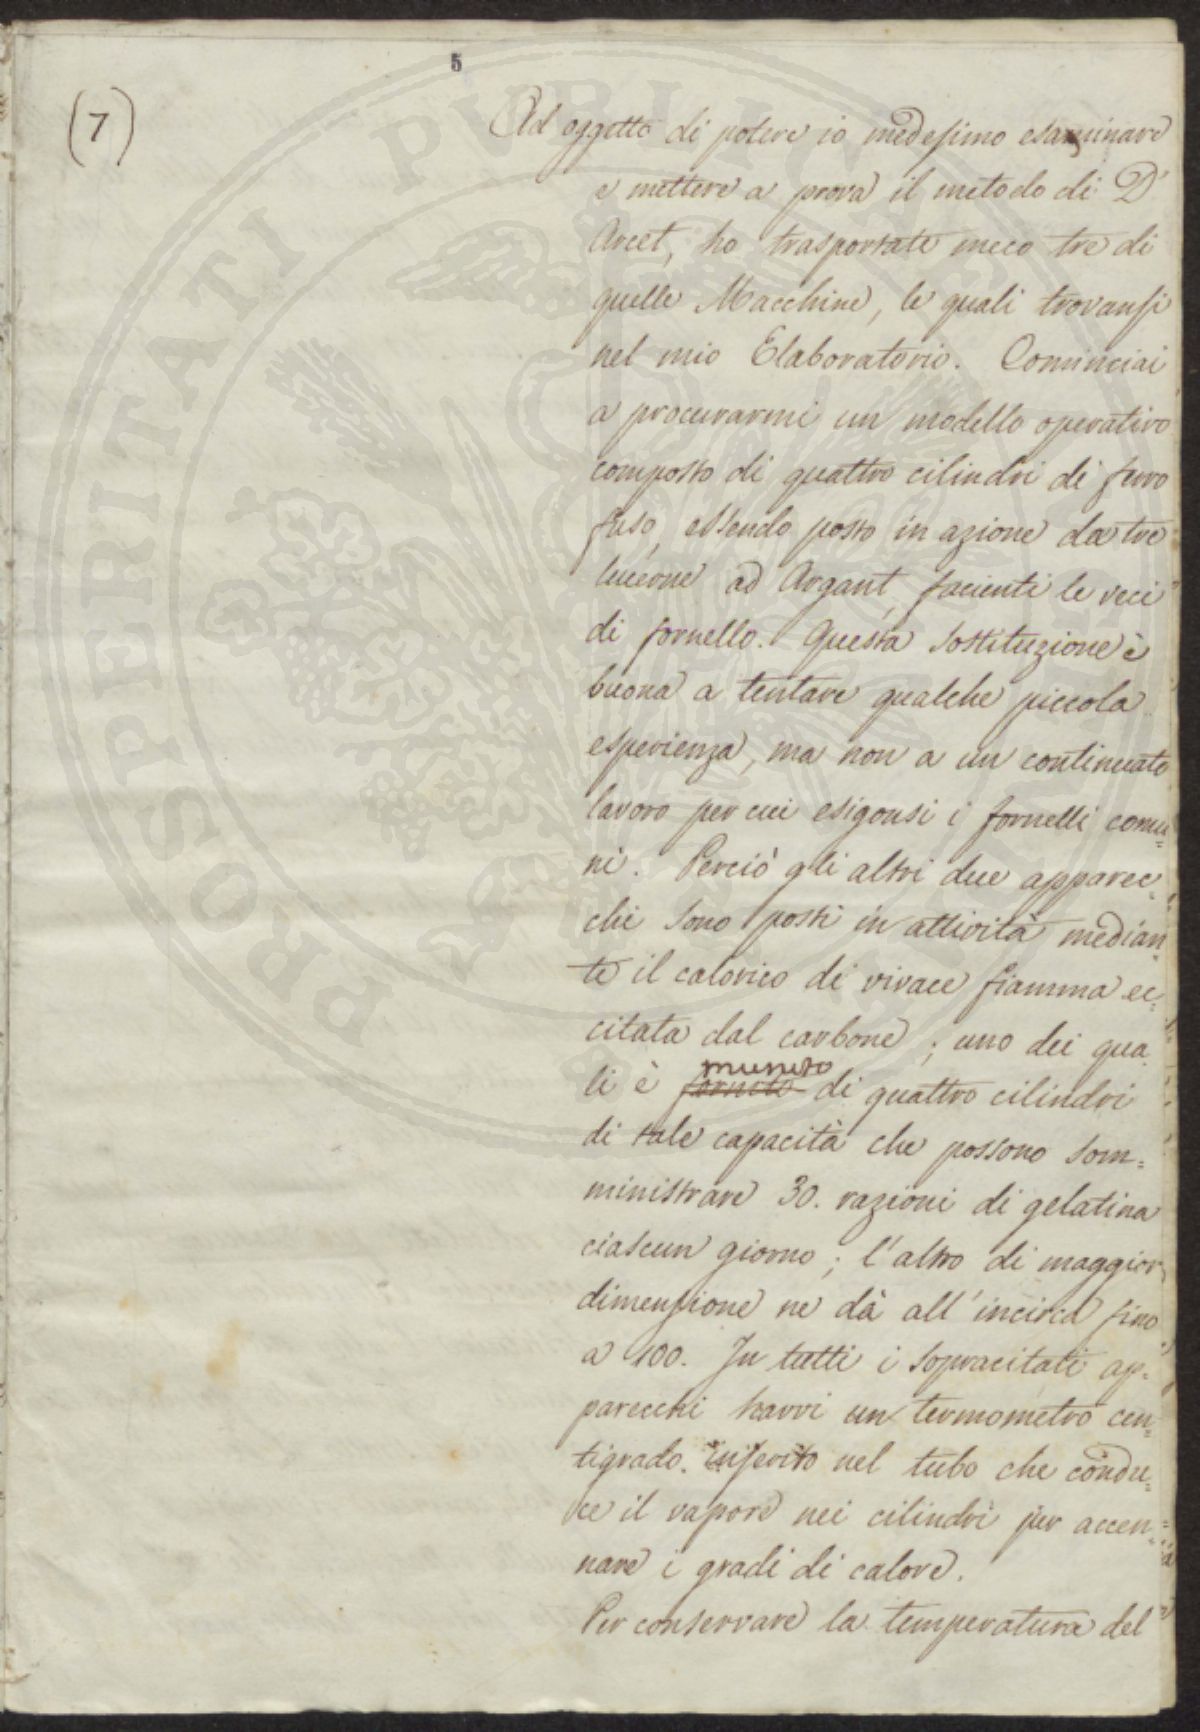 5
(7)
Ad oggetto di potere io medesimo esaminare
e mettere a prova il metodo di D'
Arcet, ho trasportate meco tre di
quelle Macchine, le quali trovansi
nel mio Elaboratorio. Cominciai
a procurarmi un modello operativo
composto di quattro cilindri di ferro
fuso, essendo posto in azione da tre
lucerne ad Argant, facienti le veci
di fornello. Questa sostituzione è
buona a tentare qualche piccola
esperienza, ma non a un continuato
lavoro per cui esigonsi i fornelli comu=
ni. Perciò gli altri due apparec=
chi sono posti in attività median=
te il calorico di vivace fiamma ec=
citata dal carbone; uno dei qua
munito
li è fornito di quattro cilindri
di tale capacità che possono som=
ministrare 30. razioni di gelatina
ciascun giorno; l'altro di maggior
dimensione ne dà all'incirca fino
a 100. In tutti i sopracitati ap=
parecchi havvi un termometro cen=
tigrado inserito nel tubo che condu=
ce il vapore nei cilindri per accen=
nare i gradi di calore.
Per conservare la temperatura del
PROSPERITATI PVBLICAE